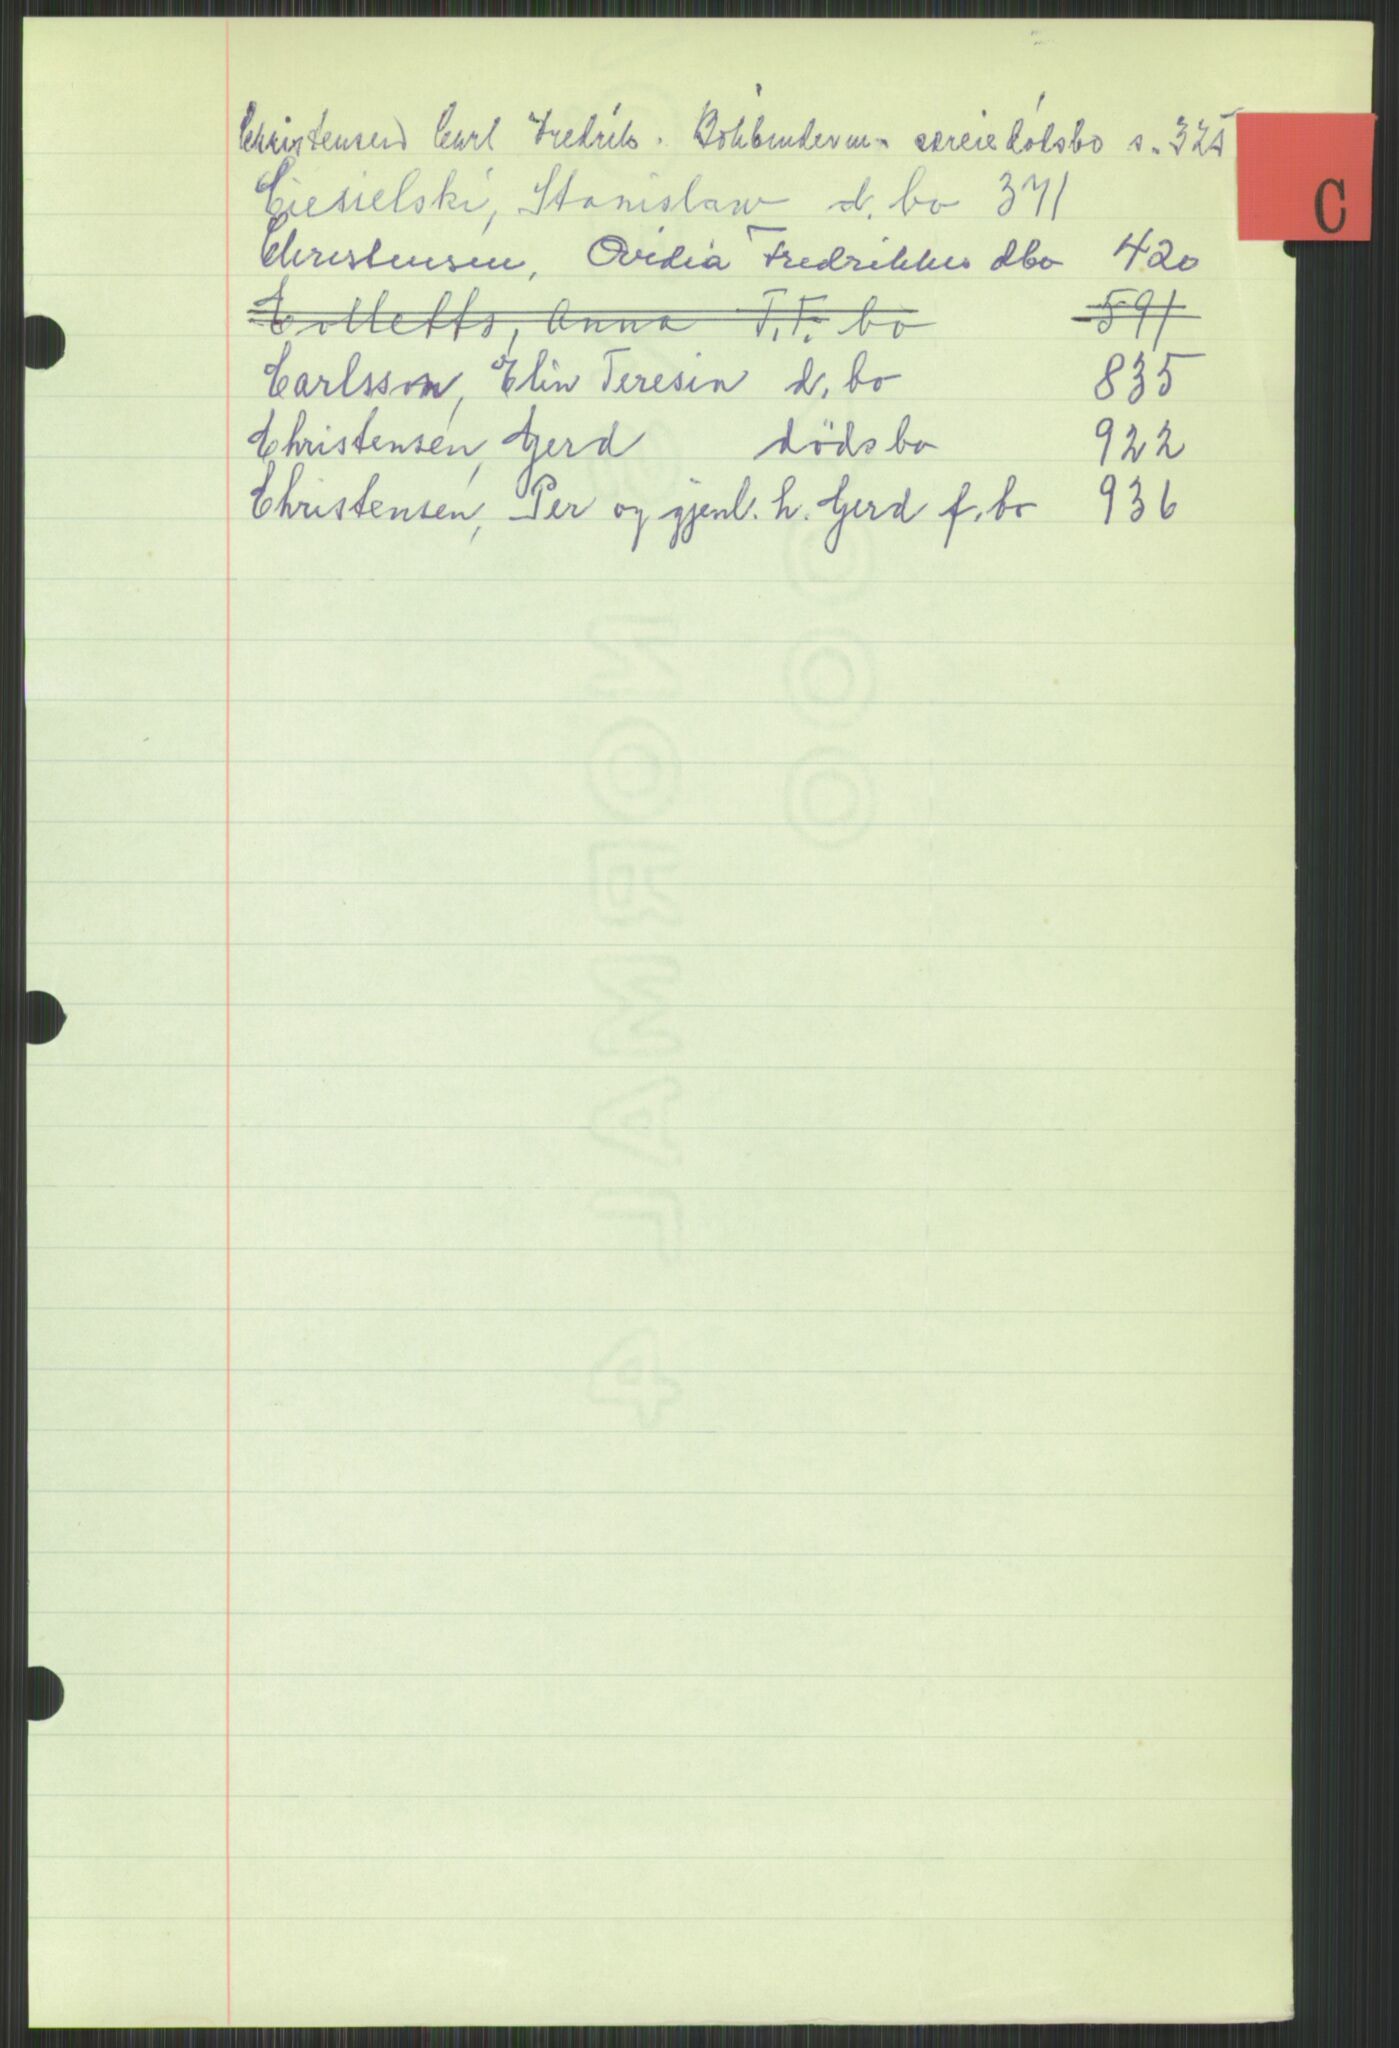 Christensen Carl Fredrik. Bokbinderm. særeie dødsbo s. 325
Ciesielski, Stanislaw d. bo 371
Christensen, Ovidia Fredrikke dbo 420
Colletts, Anna T.T. bo 591
Carlsson, Elin Teresia d. bo 835
Christensen, Gerd dödsbo 922
Christensen, Per og gjenl. h. Gerd f. bo 936
C
NORMAL 4